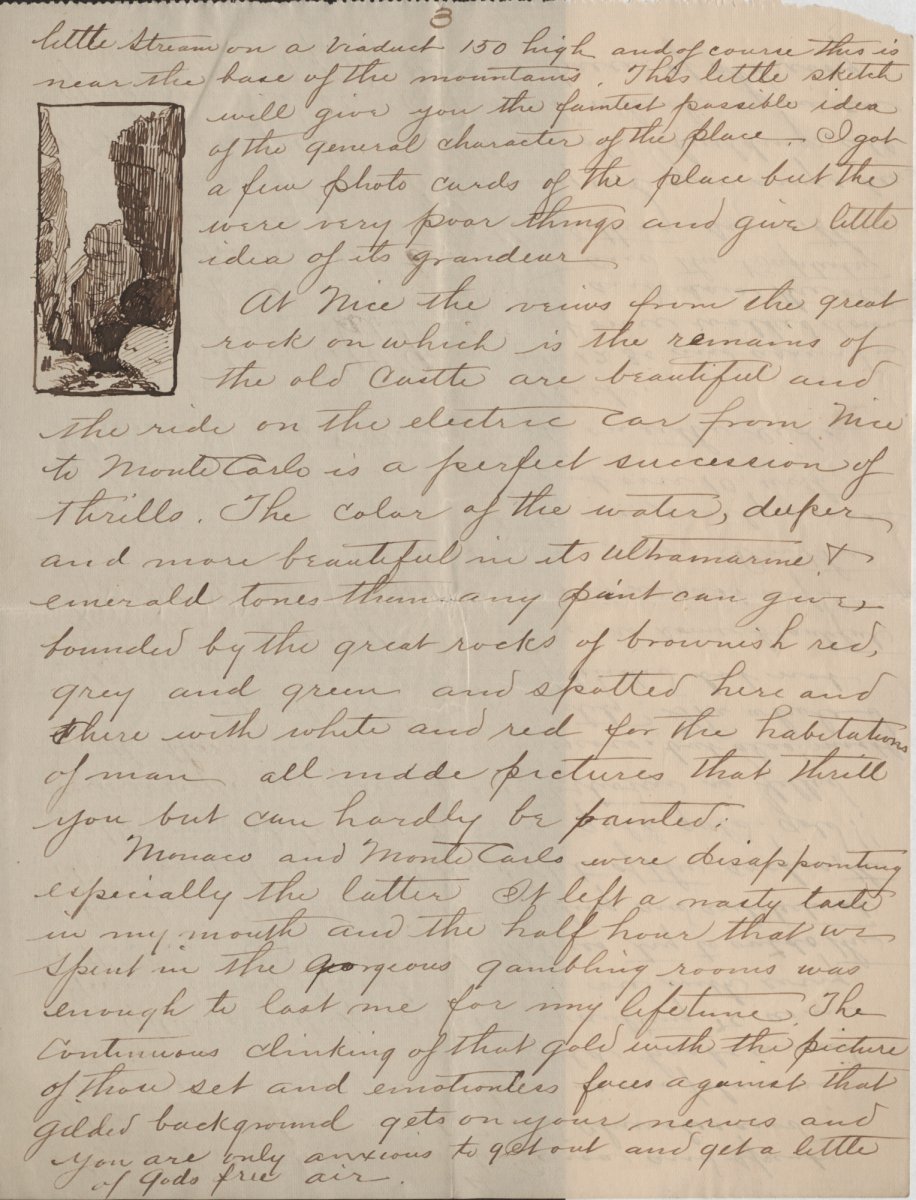 3
little stream on a viaduct 150 high and of course this is
near the base of the mountains. This little sketch
will give you the faintest possible idea
of the general character of the place. I got
a few photo cards of the place but the
were very poor things and give little
idea of its grandeur
At Nice the veiws from the great
rock on which is the remains of
the old Castle are beautiful and
the ride on the electric car from Nice
to Monte Carlo is a perfect succession of
thrills. The color of the water, deeper
and more beautiful in its ultramarine &
emerald tones than any paint can give,
bounded by the great rocks of brownish red,
grey and green and spotted here and
there with white and red for the habitations
of man all made pictures that thrill
you but can hardly be painted.
Monaco and Monte Carlo were disappointing
especially the latter It left a nasty taste
in my mouth and the half hour that we
spent in the gorgeous gambling rooms was
enough to last me for my lifetime. The
continuous clinking of that gold with the picture
of those set and emotionless faces against that
gilded background gets on your nerves and
you are only anxious to get out and get a little
of Gods free air.